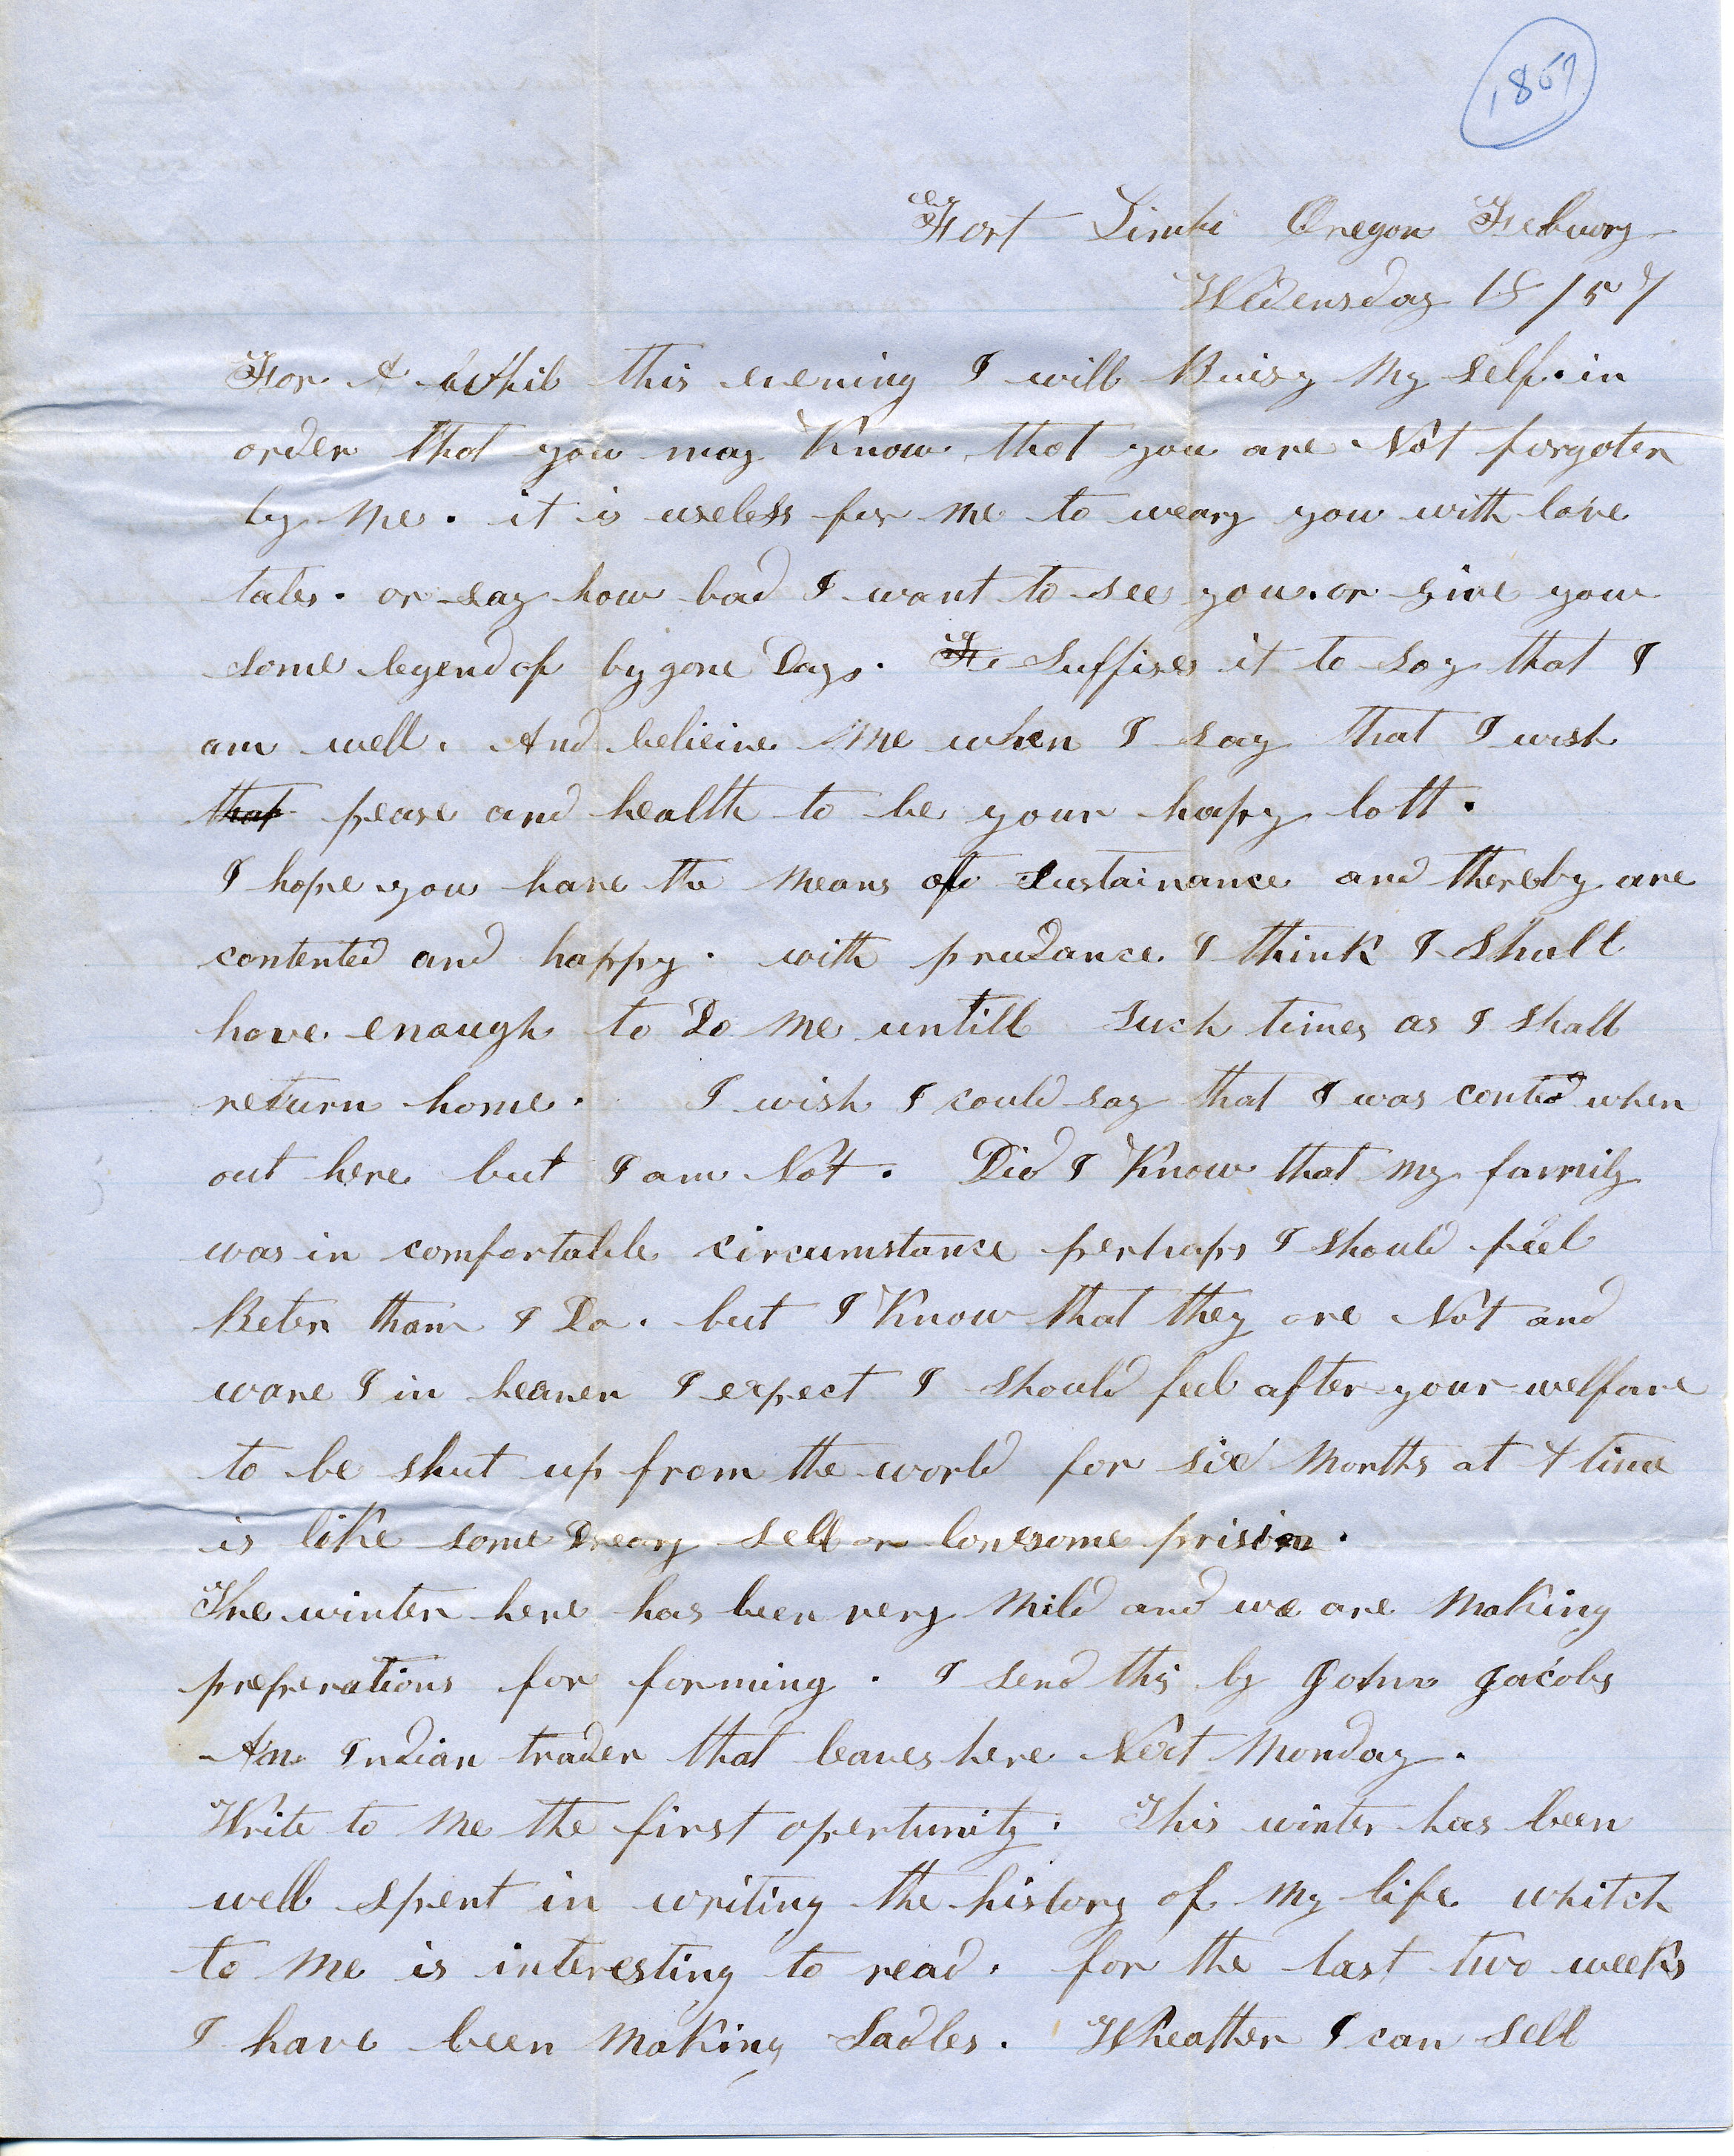 1857
Fort Limhi Oregon Febuary
Wedensday 18 / 57
For A whil this evening I will Buisy My self. in
order that you may Know. that you are Not forgoten
by Me. it is useless for Me to weary you with love
tales. or say how bad I want to see you. or give you
some legend of by gone Days. Suffise it to Say that I
am well. And belieive Me when I say that I wish
that pease and health to be your hapy lott.
I hope you have the Means of Sustainance and thereby are
contented and happy. with prudance I think I Shall
have enough to Do Me untill Such times as I Shall
return home. I wish I could say that I was conted when
out here but I am Not. Did I Know that My family
was in comfortable circumstance perhaps I Should feel
Beter than I Do. but I Know that they are Not and
ware I in heaven I expect I Should feel after your welfare
to be shut up from the world for six Months at A time
is like some Dreary Sell or lonesome prision.
The winter here has been very Mild and we are Making
preperations for forming. I Send this by John Jacobs
An Indian trader that leaves here Next Monday.
Write to Me the first opertunity. This winter has been
well Spent in writing the history of My life whitch
to Me is interesting to read. for the last two weeks
I have been Making Sadles. Wheather I can Sell